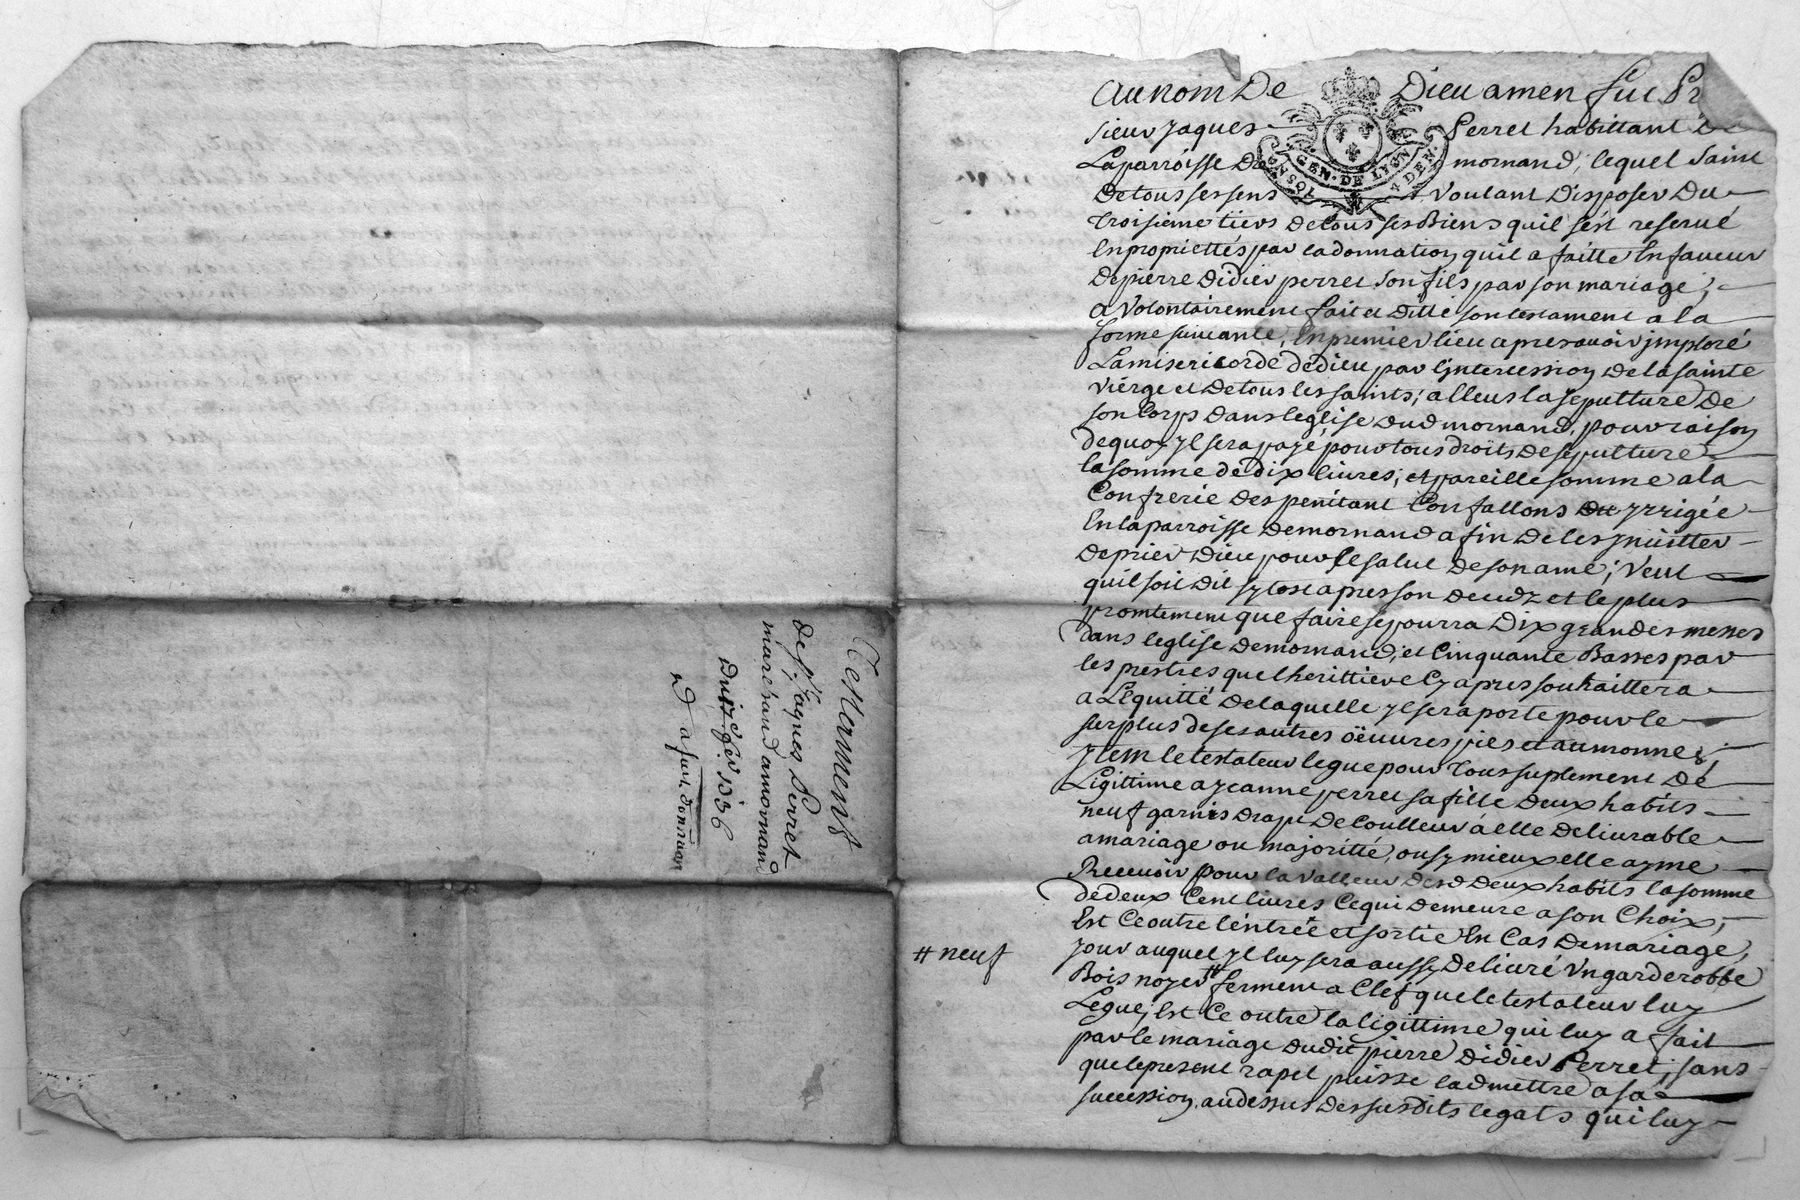 Testament
de sr Jaques Perret
marchand a mornand
Du 17e fer 1736
Au nom De Dieu amen fut
sieur Jaques Perret habittant De
La parroisse De mornand, lequel saint
De tous ses sens Voulant Disposer Du
troisieme tiers de tous ses Biens quil s'est reservé
En propriettés par la donnation quil a faitte En faveur
De pierre Didier perret son fils par son mariage,
a Volontairement fait et Ditté son testament a la
forme suivante, En premier lieu apres avoir jmploré
La misericorde de dieu par L'jntercession De la sainte
Viérge et De tous les saints; a l
la sepulture De
son Corps Dans leglise Dud mornand, pour raison
De quoy Yl sera payé, pour tous droits De sepulture
la somme de dix livres; et pareille somme a la
Confrerie Des penitant Confallons Du Yrrigée
En la parroisse De mornand afin De les jnvitter
De prier Dieu pour le salut De son ame; Veut
quil soit Dit sy tost apres son Decedz et le plus
promtement que faire se pourra Dix grandes messes
Dans leglise De mornand, et Cinquante Basses par
les prestres que lherittiere Cy apres souhaittera
a L'equitté De laquelle Yl se raporte pour le
surplus de ses autres öeuvres pies et aumonnes;
Ytem le testateur legue pour tous suplement De
Ligittime a Jeanne perret sa fille Deux habits
neuf garnis Drap De Coulleur a elle Delivrable
a mariage ou majoritté, ou sy mieux elle ayme
Recevoir pour la Valleur Desd Deux habits la somme
De deux Cent livres Ce qui Demeure a son Choix,
Est Ce outre l'entrée et sortie En Cas De mariage,
Jour auquel Yl luy sera aussy Delivré Un garderobbe
# neuf
Bois noyer # ferment a Clef que le testateur luy
Legue, Est Ce outre la ligittime qui luy a fait
par le mariage Dudit pierre Didier Perret, sans
que le present rapel puisse ladmettre a sa
succession, au dessus Des susdits legats qui luy
GEN. DE LYON
4 DEN.